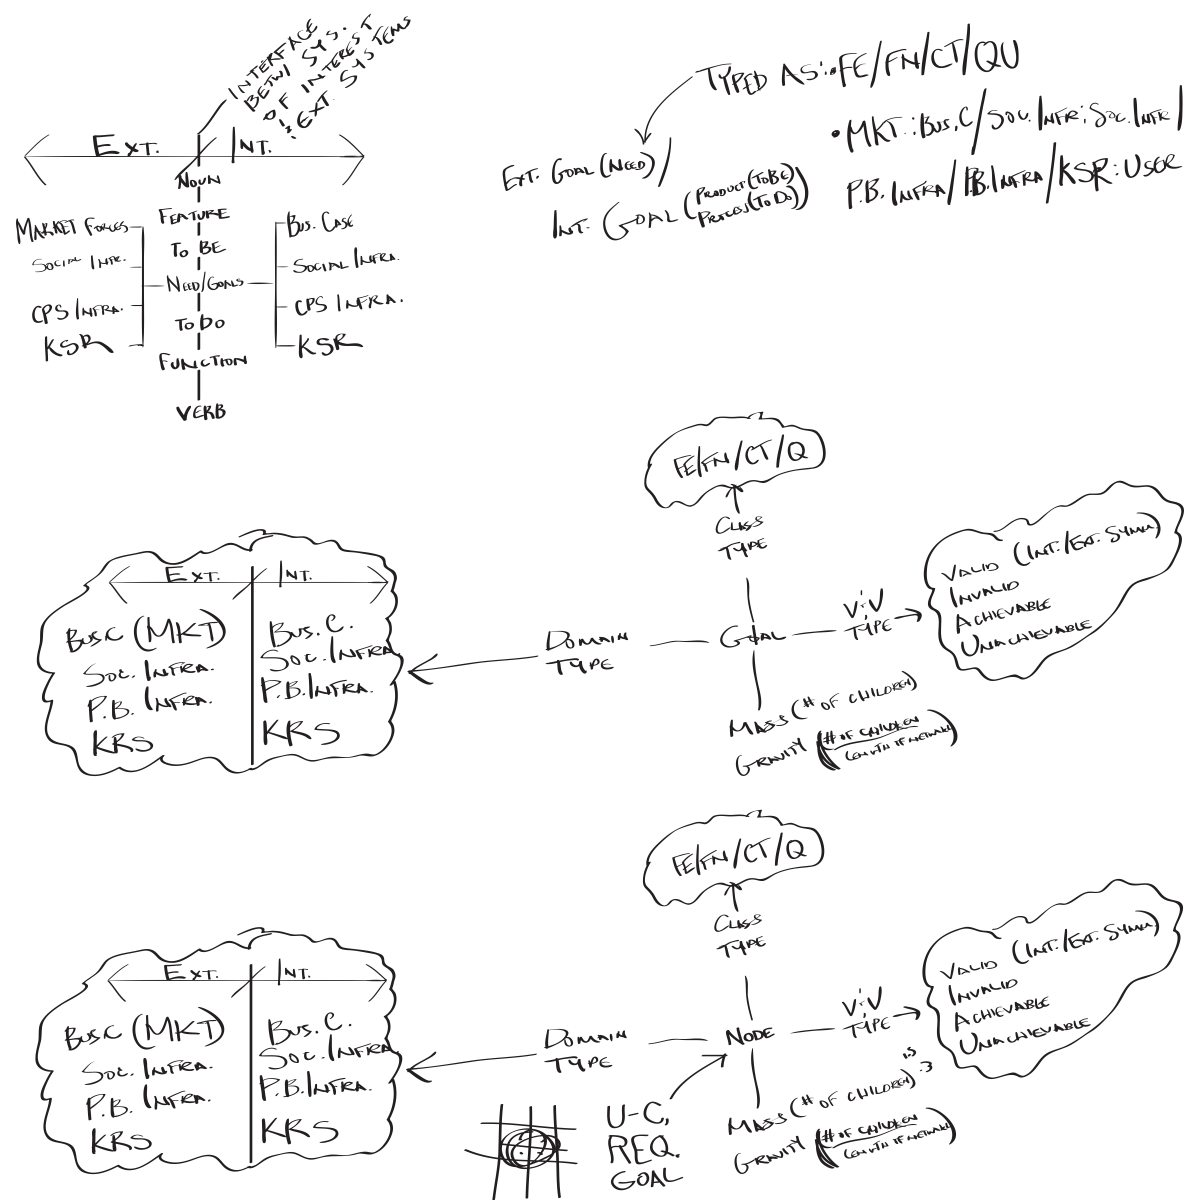 INTERFACE
BETW/ SYS.
OF INTEREST
EXT. SYSTEMS
EXT. INT.
NOUN
FEATURE
TO BE
NEED/GOALS
TO DO
FUNCTION
VERB
MARKET FORCES
SOCIAL INFR.
CPS INFRA.
KSR
BUS. CASE
SOCIAL INFRA.
CPS INFRA.
KSR
TYPED AS: •FE/FN/CT/QU
•MKT.:BUS.C/SOC. INFR:SOC. INFR/
P.B. INFRA/P.B. INFRA/KSR:USER
EXT. GOAL (NEED)/
INT. GOAL (PRODUCT (TO BE)
PROCESS (TO DO))
FE/FN/CT/Q
CLASS
TYPE
EXT. INT.
BUSC (MKT)
SOC. INFRA.
P.B. INFRA.
KRS
BUS. C.
SOC. INFRA.
P.B. INFRA.
KRS
DOMAIN
TYPE
GOAL
V;V
TYPE
VALID (INT./EXT. SYMM.)
INVALID
ACHIEVABLE
UNACHIEVABLE
MASS (# OF CHILDREN)
GRAVITY (# OF CHILDREN
LENGTH OF NETWORK)
FE/FN/CT/Q
CLASS
TYPE
EXT. INT.
BUSC (MKT)
SOC. INFRA.
P.B. INFRA.
KRS
BUS. C.
SOC. INFRA.
P.B. INFRA.
KRS
DOMAIN
TYPE
NODE
V;V
TYPE
VALID (INT./EXT. SYMM.)
INVALID
ACHIEVABLE
UNACHIEVABLE
MASS (# OF CHILDREN)
GRAVITY (# OF CHILDREN
LENGTH OF NETWORK)
U-C,
REQ.
GOAL